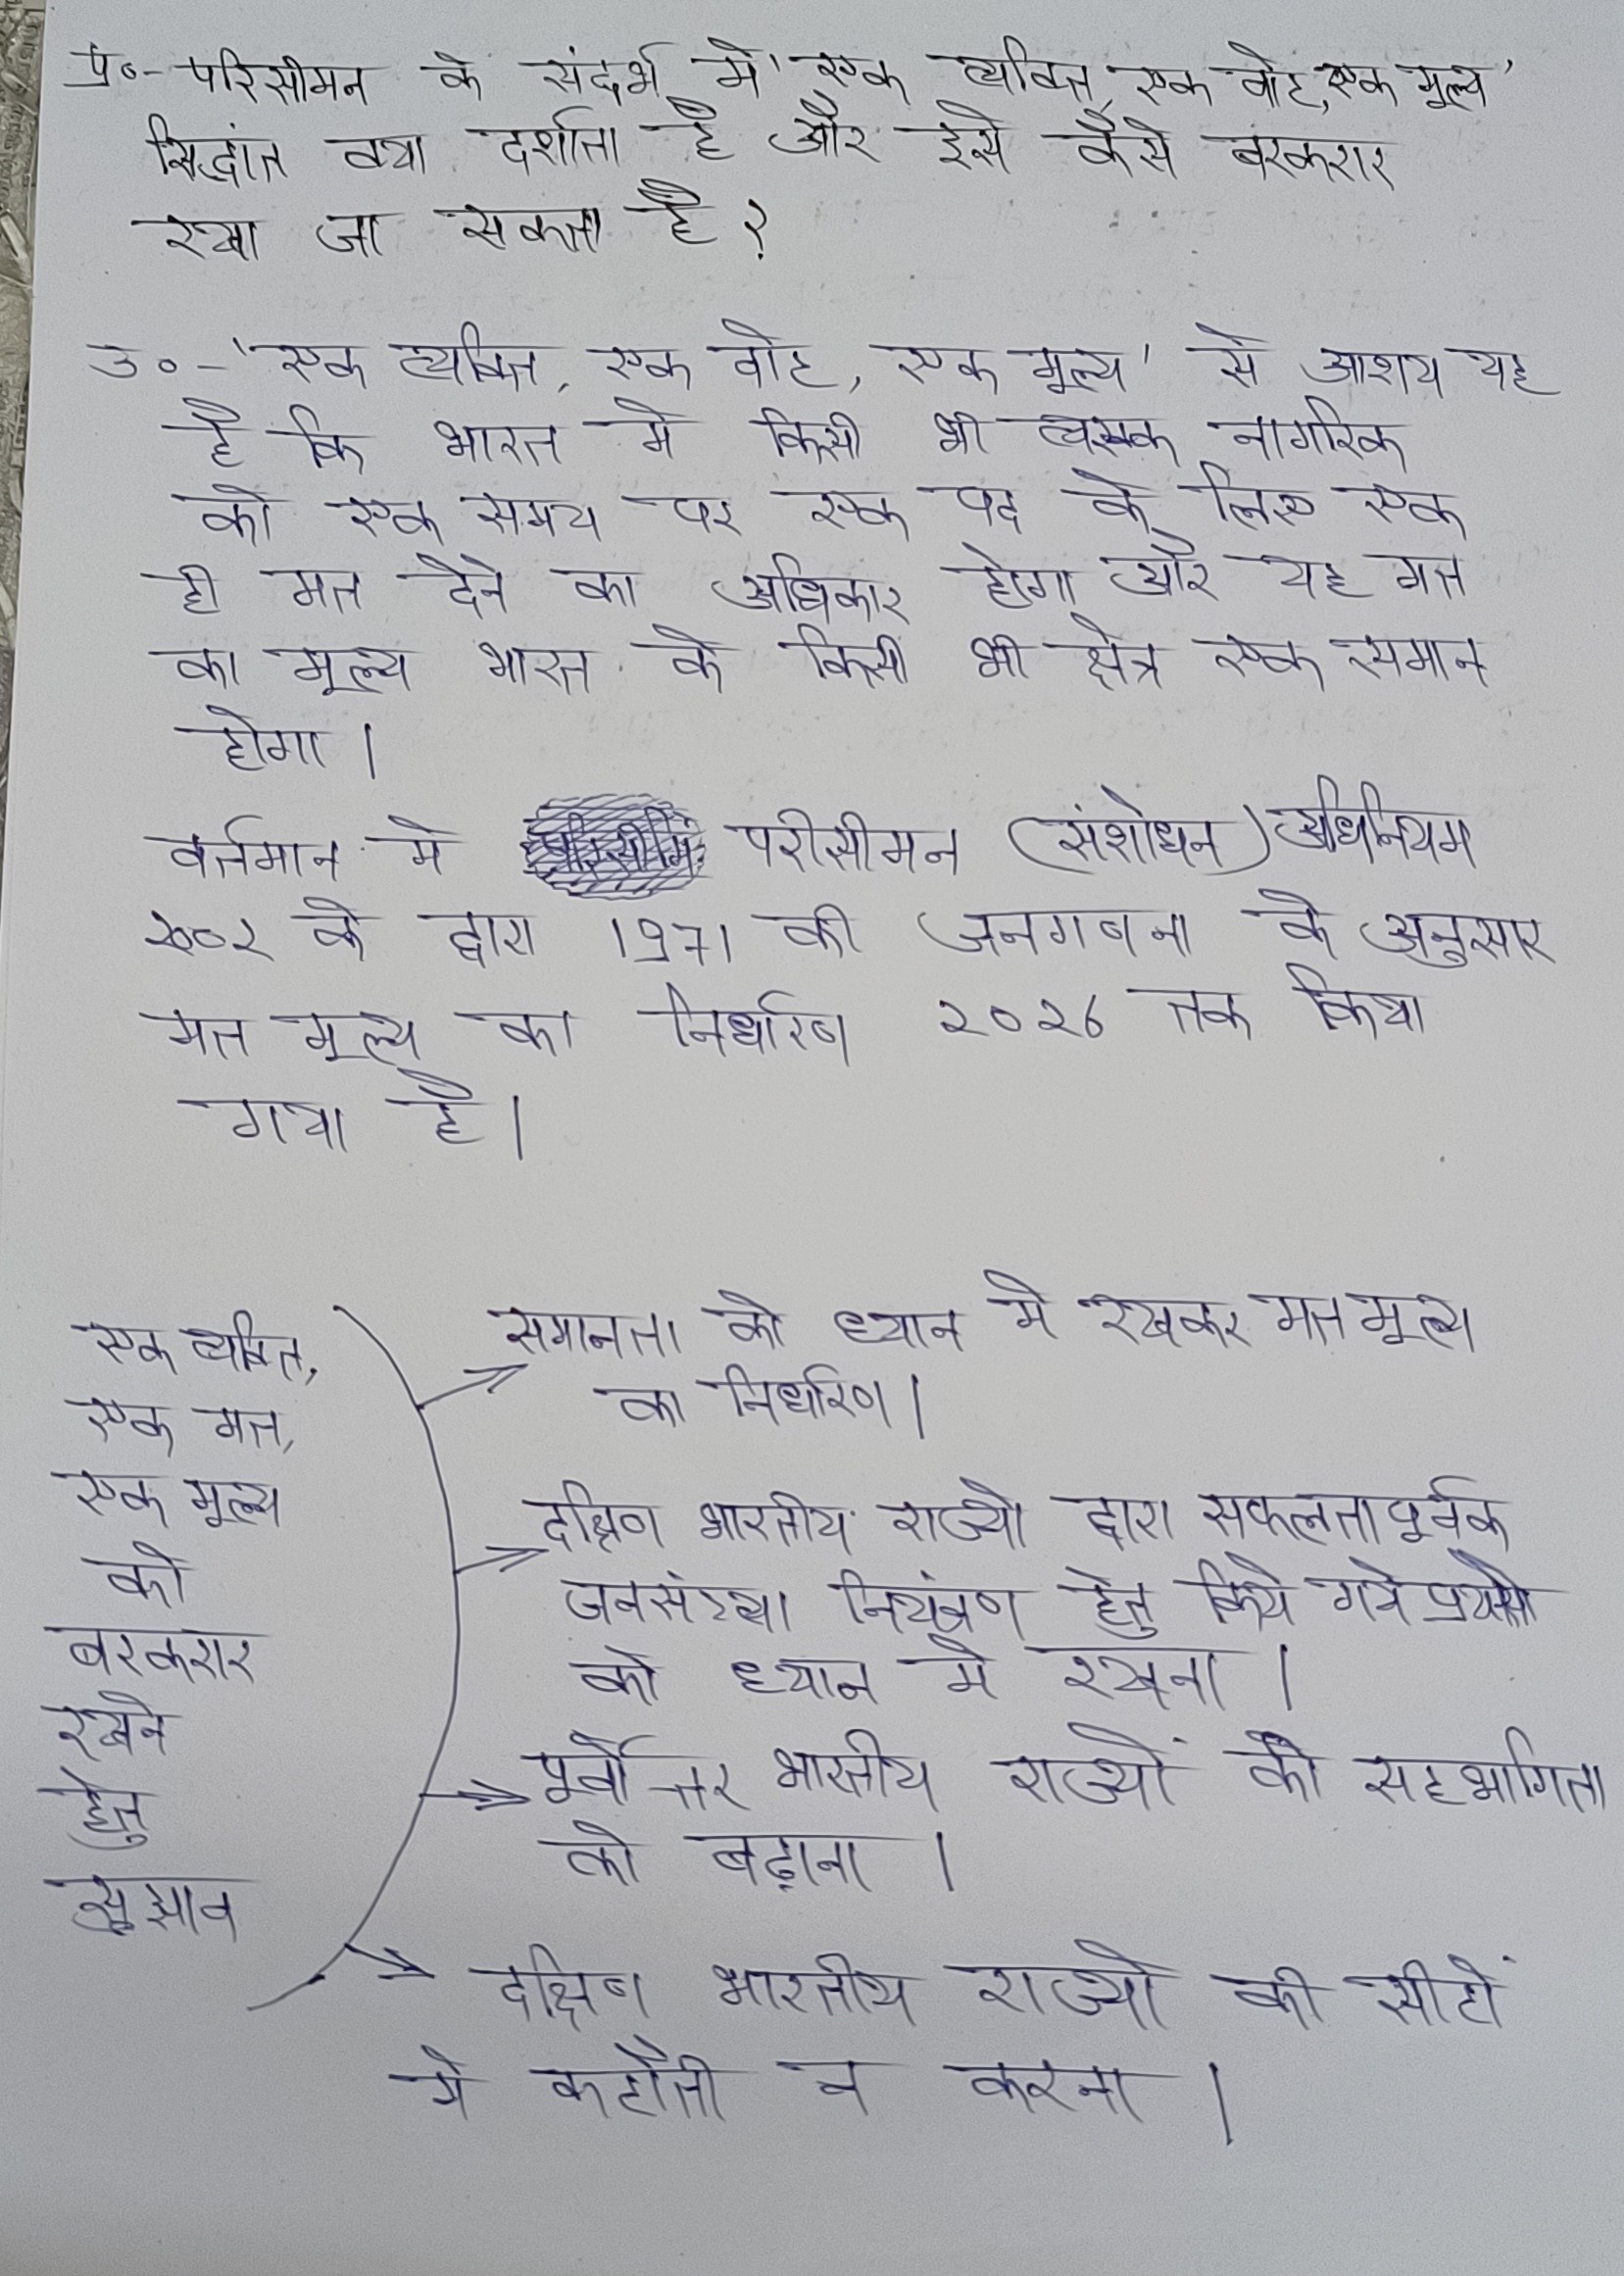 प्र०- परिसीमन के संदर्भ में 'एक व्यक्ति, एक वोट, एक मूल्य'
सिद्धांत क्या दर्शाता है और इसे कैसे बरकरार
रखा जा सकता है ?
उ०- 'एक व्यक्ति, एक वोट, एक मूल्य' से आशय यह
है कि भारत मे किसी भी व्यस्क नागरिक
को एक समय पर एक पद के लिए एक
ही मत देने का अधिकार होगा और यह मत
का मूल्य भारत के किसी भी क्षेत्र एक समान
होगा |
वर्तमान मे परीसीमन (संशोधन) अधिनियम
२००२ के द्वारा 1971 की जनगणना के अनुसार
मत मूल्य का निर्धारण २०२६ तक किया
गया है |
एक व्यक्ति,
एक मत,
एक मूल्य
को
बरकरार
रखने
हेतु
सुझाव
समानता को ध्यान मे रखकर मत मूल्य
का निर्धारण |
दक्षिण भारतीय राज्यो द्वारा सफलतापूर्वक
जनसंख्या नियंत्रण हेतु किये गये प्रयासो
को ध्यान मे रखना |
पूर्वोत्तर भारतीय राज्यों की सहभागिता
को बढ़ाना |
दक्षिण भारतीय राज्यो की सीटों
मे कटौती न करना |